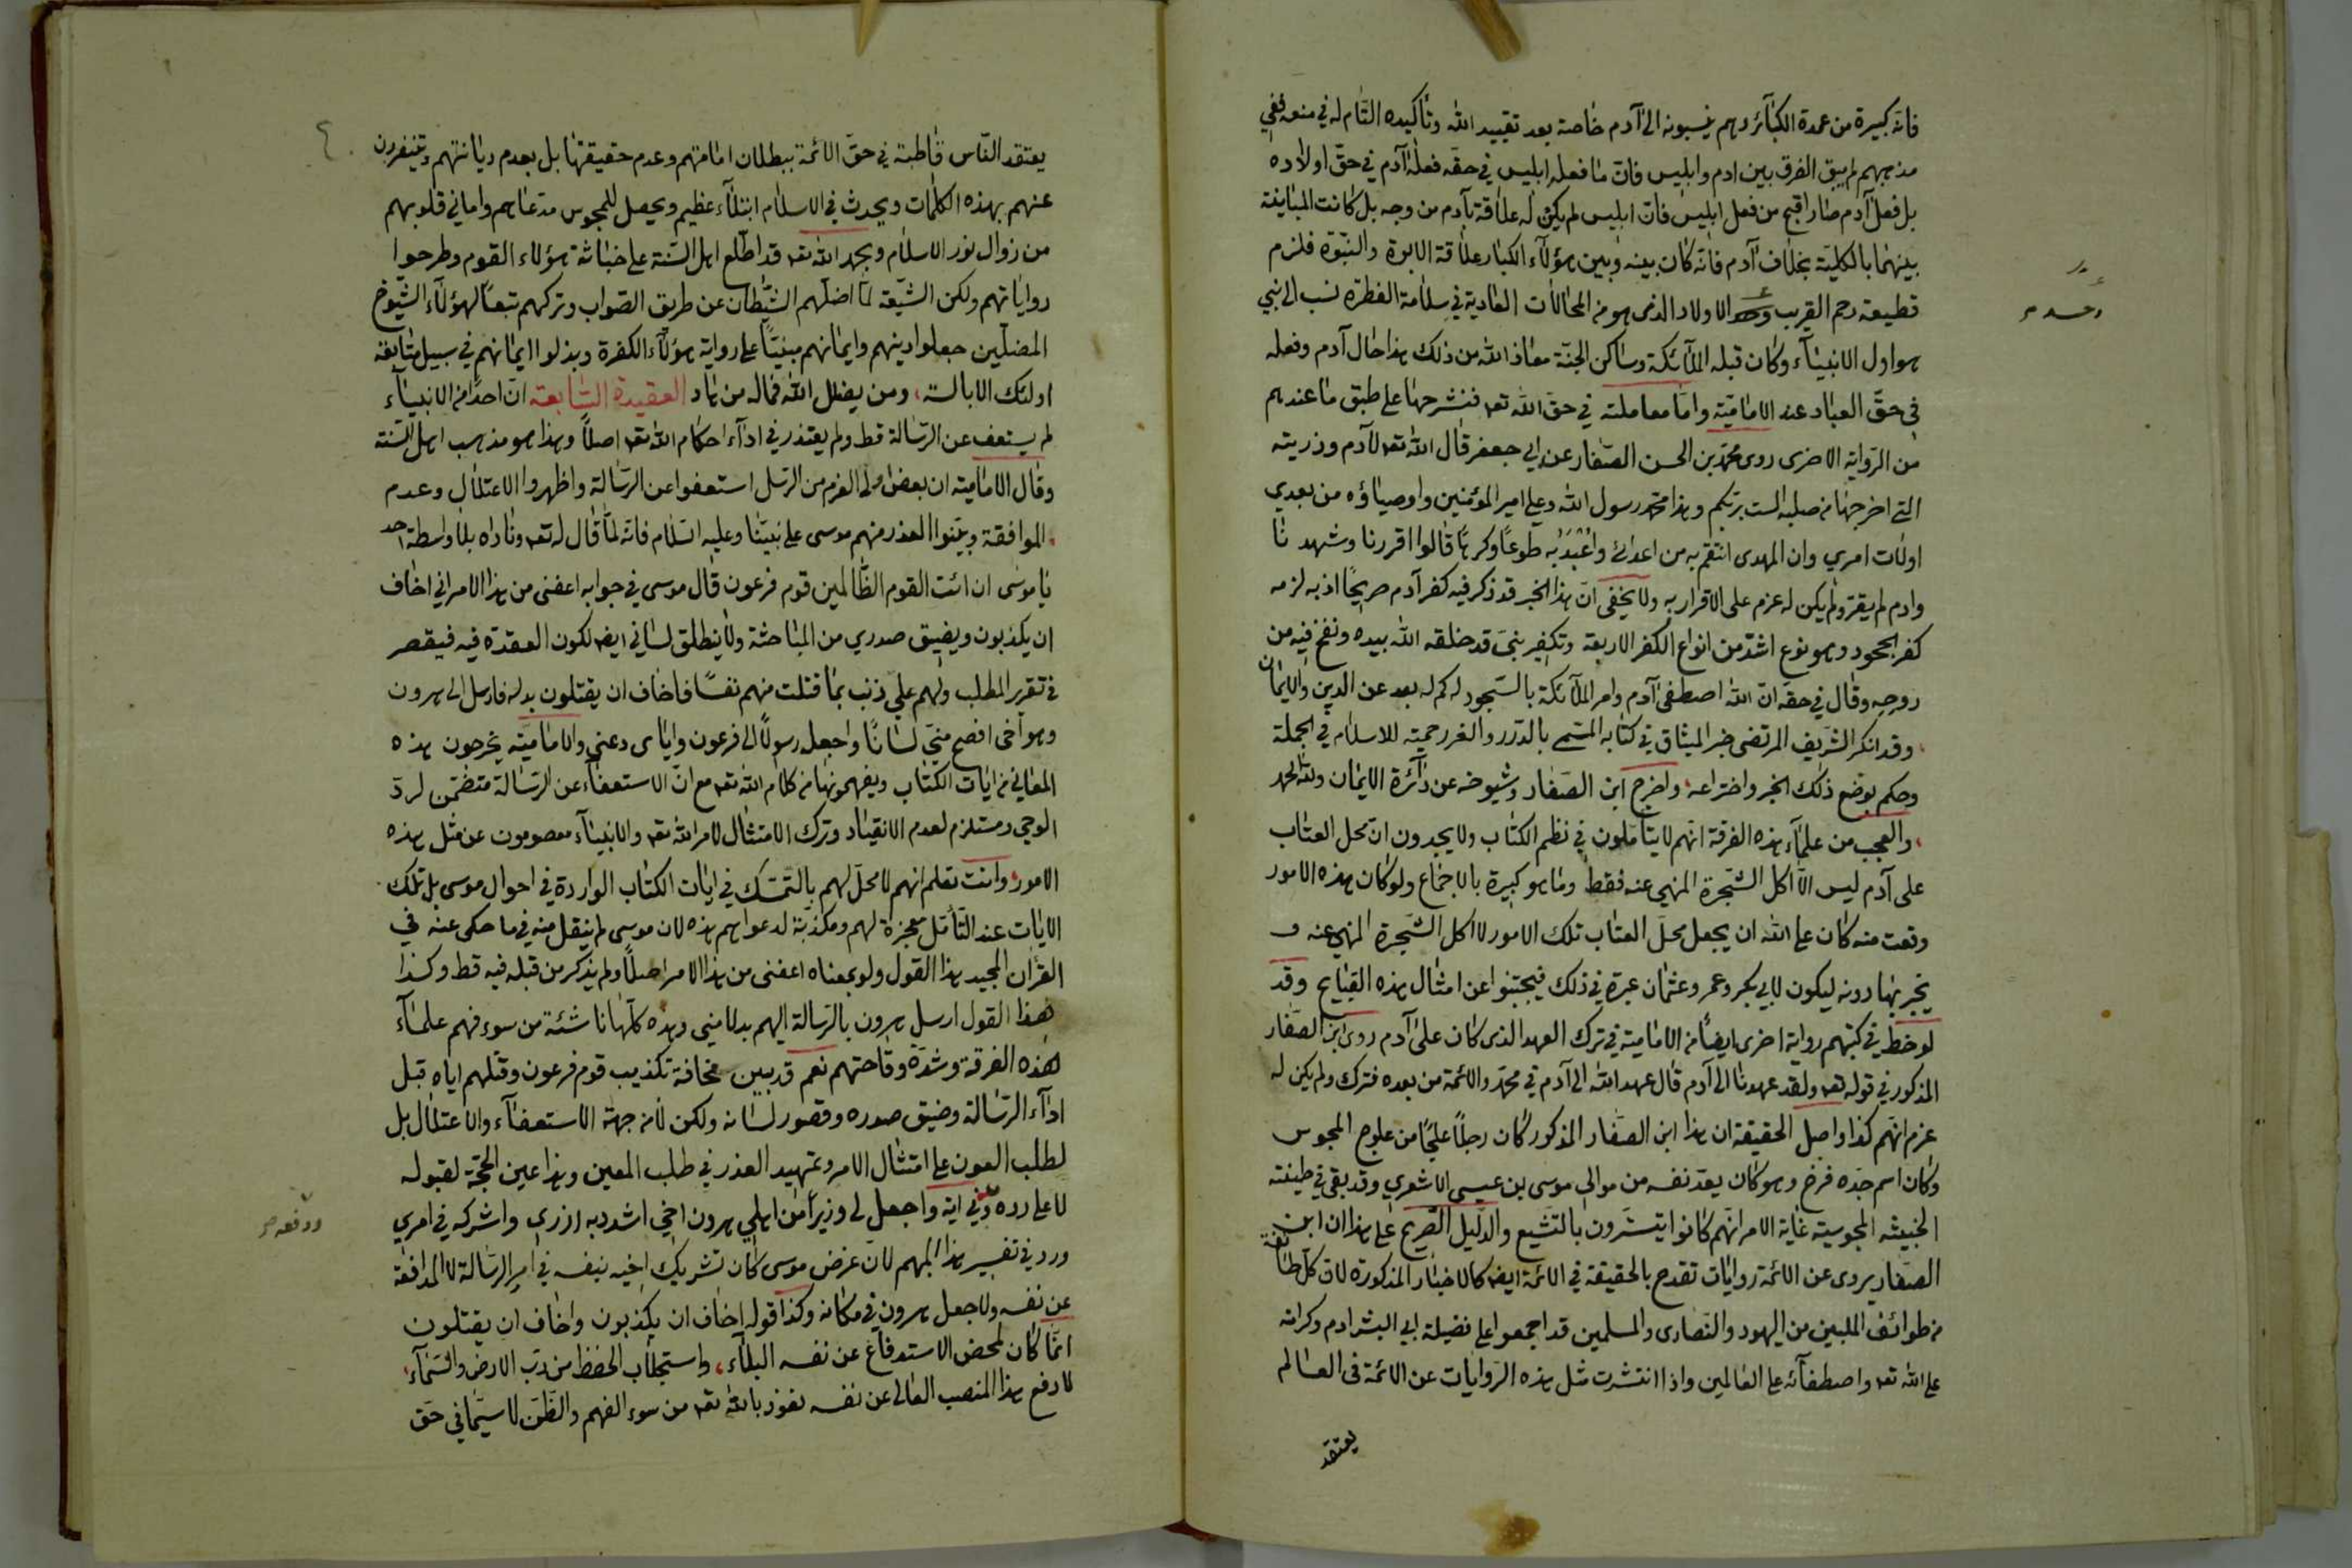 فانه كبيرة من عمدة الكبائر وهم ينسبونه الى آدم خاصة بعد تقييد الله وتأكيده التام له في منعه ففي
مذهبهم لم يبق الفرق بين ادم وابليس فان ما فعله ابليس في حقه فعله آدم في حق اولاده
بل فعل آدم صار اقبح من فعل ابليس فان ابليس لم يكن له علاقة بآدم من وجه بل كانت المباينة
بينهما بالكلية بخلاف آدم فانه كان بينه وبين هؤلاء الكبار علاقة الابوة والنبوة فلزم
قطيعة رحم القريب الاولاد الذى هو من المحالات العادية في سلامة الفطرة نسب الى نبي
هو اول الانبياء وكان قبله الملائكة وساكن الجنة معاذ الله من ذلك هذا حال آدم وفعله
في حق العباد عند الامامية واما معاملته في حق الله تعه فنشرحها على طبق ما عندهم
من الرواية الاخرى روى محمد بن الحسن الصفار عن ابي جعفر قال الله تعه لآدم وذريته
التي اخرجها من صلبه الست بربكم وهذا محمد رسول الله وعلي امير المؤمنين واوصياؤه من بعدي
اولات امري وان المهدى انتقم به من اعدائى واعبد به طوعا وكرها قالوا اقررنا وشهدنا
وادم لم يقر ولم يكن له عزم على الاقرار به ولا يخفى ان هذا الخبر قد ذكر فيه كفر آدم صريحا اذ به لزمه
كفر الجحود وهو نوع اشد من انواع الكفر الاربعة وتكفير نبى قد خلقه الله بيده ونفخ فيه من
روحه وقال في حقه ان الله اصطفى آدم وامر الملائكة بالسجود له كم له بعد عن الدين والايمان
وقد انكر الشريف المرتضى خبر الميثاق في كتابه المسمى بالدرر والغرر حمية للاسلام في الجملة
وحكم بوضع ذلك الخبر واختراعه واخرج ابن الصفار وشيوخه عن دائرة الايمان ولله الحمد
والعجب من علماء هذه الفرقة انهم لا يتأملون في نظم الكتاب ولا يجدون ان محل العتاب
على آدم ليس الا اكل الشجرة المنهى عنه فقط وما هو كبيرة بالاجماع ولو كان هذه الامور
وقعت منه كان على الله ان يجعل محل العتاب تلك الامور لا اكل الشجرة المنهى عنه و
يخبر بها دونه ليكون لابي بكر وعمر وعثمان عبرة في ذلك فيجتنبوا عن امثال هذه القبايح وقد
لوحظ في كتبهم رواية اخرى ايضا من الامامية في ترك العهد الذى كان على آدم روى ابن الصفار
المذكور في قوله تعه ولقد عهدنا الى آدم قال عهد الله الى آدم في محمد والائمة من بعده فترك ولم يكن له
عزم انهم كذا واصل الحقيقة ان هذا ابن الصفار المذكور كان رجلا علجا من علوج المجوس
وكان اسم جده فرخ وهو كان يعد نفسه من موالى موسى بن عيسى الاشعري وقد بقى في طينته
الخبيثه المجوسية غاية الامر انهم كانوا يتسترون بالتشيع والدليل الصريح على هذا ان ابن
الصفار يروى عن الائمة روايات تقدح بالحقيقة في الائمة ايضا كالاخبار المذكورة لان كل طائفة
من طوائف المليين من اليهود والنصارى والمسلمين قد اجمعوا على فضيلة ابي البشر ادم وكرامته
على الله تعه واصطفائه على العالمين واذا انتشرت مثل هذه الروايات عن الائمة في العالم
يعتقد
يعتقد الناس قاطبة في حق الائمة ببطلان امامتهم وعدم حقيقتها بل بعدم ديانتهم ويتنفرون
عنهم بهذه الكلمات ويحدث في الاسلام ابتلاء عظيم ويحصل للمجوس مدعاهم واماني قلوبهم
من زوال نور الاسلام وبحمد الله تعه قد اطلع اهل السنة على خباثة هؤلاء القوم وطرحوا
رواياتهم ولكن الشيعة لما اضلهم الشيطان عن طريق الصواب وتركهم تبعا لهؤلاء الشيوخ
المضلين جعلوا دينهم وايمانهم مبنيا على رواية هؤلاء الكفرة وبذلوا ايمانهم في سبيل متابعة
اولئك الابالسة ومن يضلل الله فما له من هاد العقيدة السابعة ان احدا من الانبياء
لم يستعف عن الرسالة قط ولم يعتذر في اداء احكام الله تعه اصلا وهذا هو مذهب اهل السنة
وقال الامامية ان بعض اولى العزم من الرسل استعفوا عن الرسالة واظهروا الاعتلال وعدم
الموافقة وبينوا العذر منهم موسى على نبينا وعليه السلام فانه لما قال له تعه وناداه بلا واسطة احد
يا موسى ان ائت القوم الظالمين قوم فرعون قال موسى في جوابه اعفنى من هذا الامر اني اخاف
ان يكذبون ويضيق صدري من المباحثة ولا ينطلق لساني ايضا لكون العقدة فيه فيقصر
في تقرير المطلب ولهم علي ذنب بما قتلت منهم نفسا فاخاف ان يقتلون بدله فارسل الى هرون
وهو اخى افصح مني لسانا واجعله رسولا الى فرعون واياى دعني والامامية يخرجون هذه
المعاني من ايات الكتاب ويفهمونها من كلام الله تعه مع ان الاستعفاء عن الرسالة متضمن لرد
الوحي ومستلزم لعدم الانقياد وترك الامتثال لامر الله تعه والانبياء معصومون عن مثل هذه
الامور وانت تعلم انهم لا محل لهم بالتمسك في ايات الكتاب الواردة في احوال موسى بل تلك
الايات عند التأمل معجزة لهم ومكذبة لدعواهم هذه لان موسى لم ينقل منه في ما حكى عنه في
القرآن المجيد هذا القول ولو بمعناه اعفنى من هذا الامر اصلا ولم يذكر من قبله فيه قط وكذا
هذا القول ارسل هرون بالرسالة اليهم بدلا منى وهذه كلها ناشئة من سوء فهم علماء
هذه الفرقة وشدة وقاحتهم نعم قد بين مخافة تكذيب قوم فرعون وقتلهم اياه قبل
اداء الرسالة وضيق صدره وقصور لسانه ولكن لا من جهة الاستعفاء والاعتلال بل
لطلب العون على امتثال الامر وتمهيد العذر في طلب المعين وهذا عين الحجة لقبوله
لا على رده وفي اية واجعل لى وزيرا من اهلي هرون اخي اشدد به ازرى واشركه في امري
ورد في تفسير هذا المبهم لان غرض موسى كان تشريك اخيه بنفسه في امر الرسالة لا المدافعة
عن نفسه ولا جعل هرون في مكانه وكذا قوله اخاف ان يكذبون واخاف ان يقتلون
انما كان لمحض الاستدفاع عن نفسه البلاء واستجلاب الحفظ من رب الارض والسماء
لا دفع هذا المنصب العالى عن نفسه نعوذ بالله تعه من سوء الفهم والظن لا سيما في حق
ودفعه